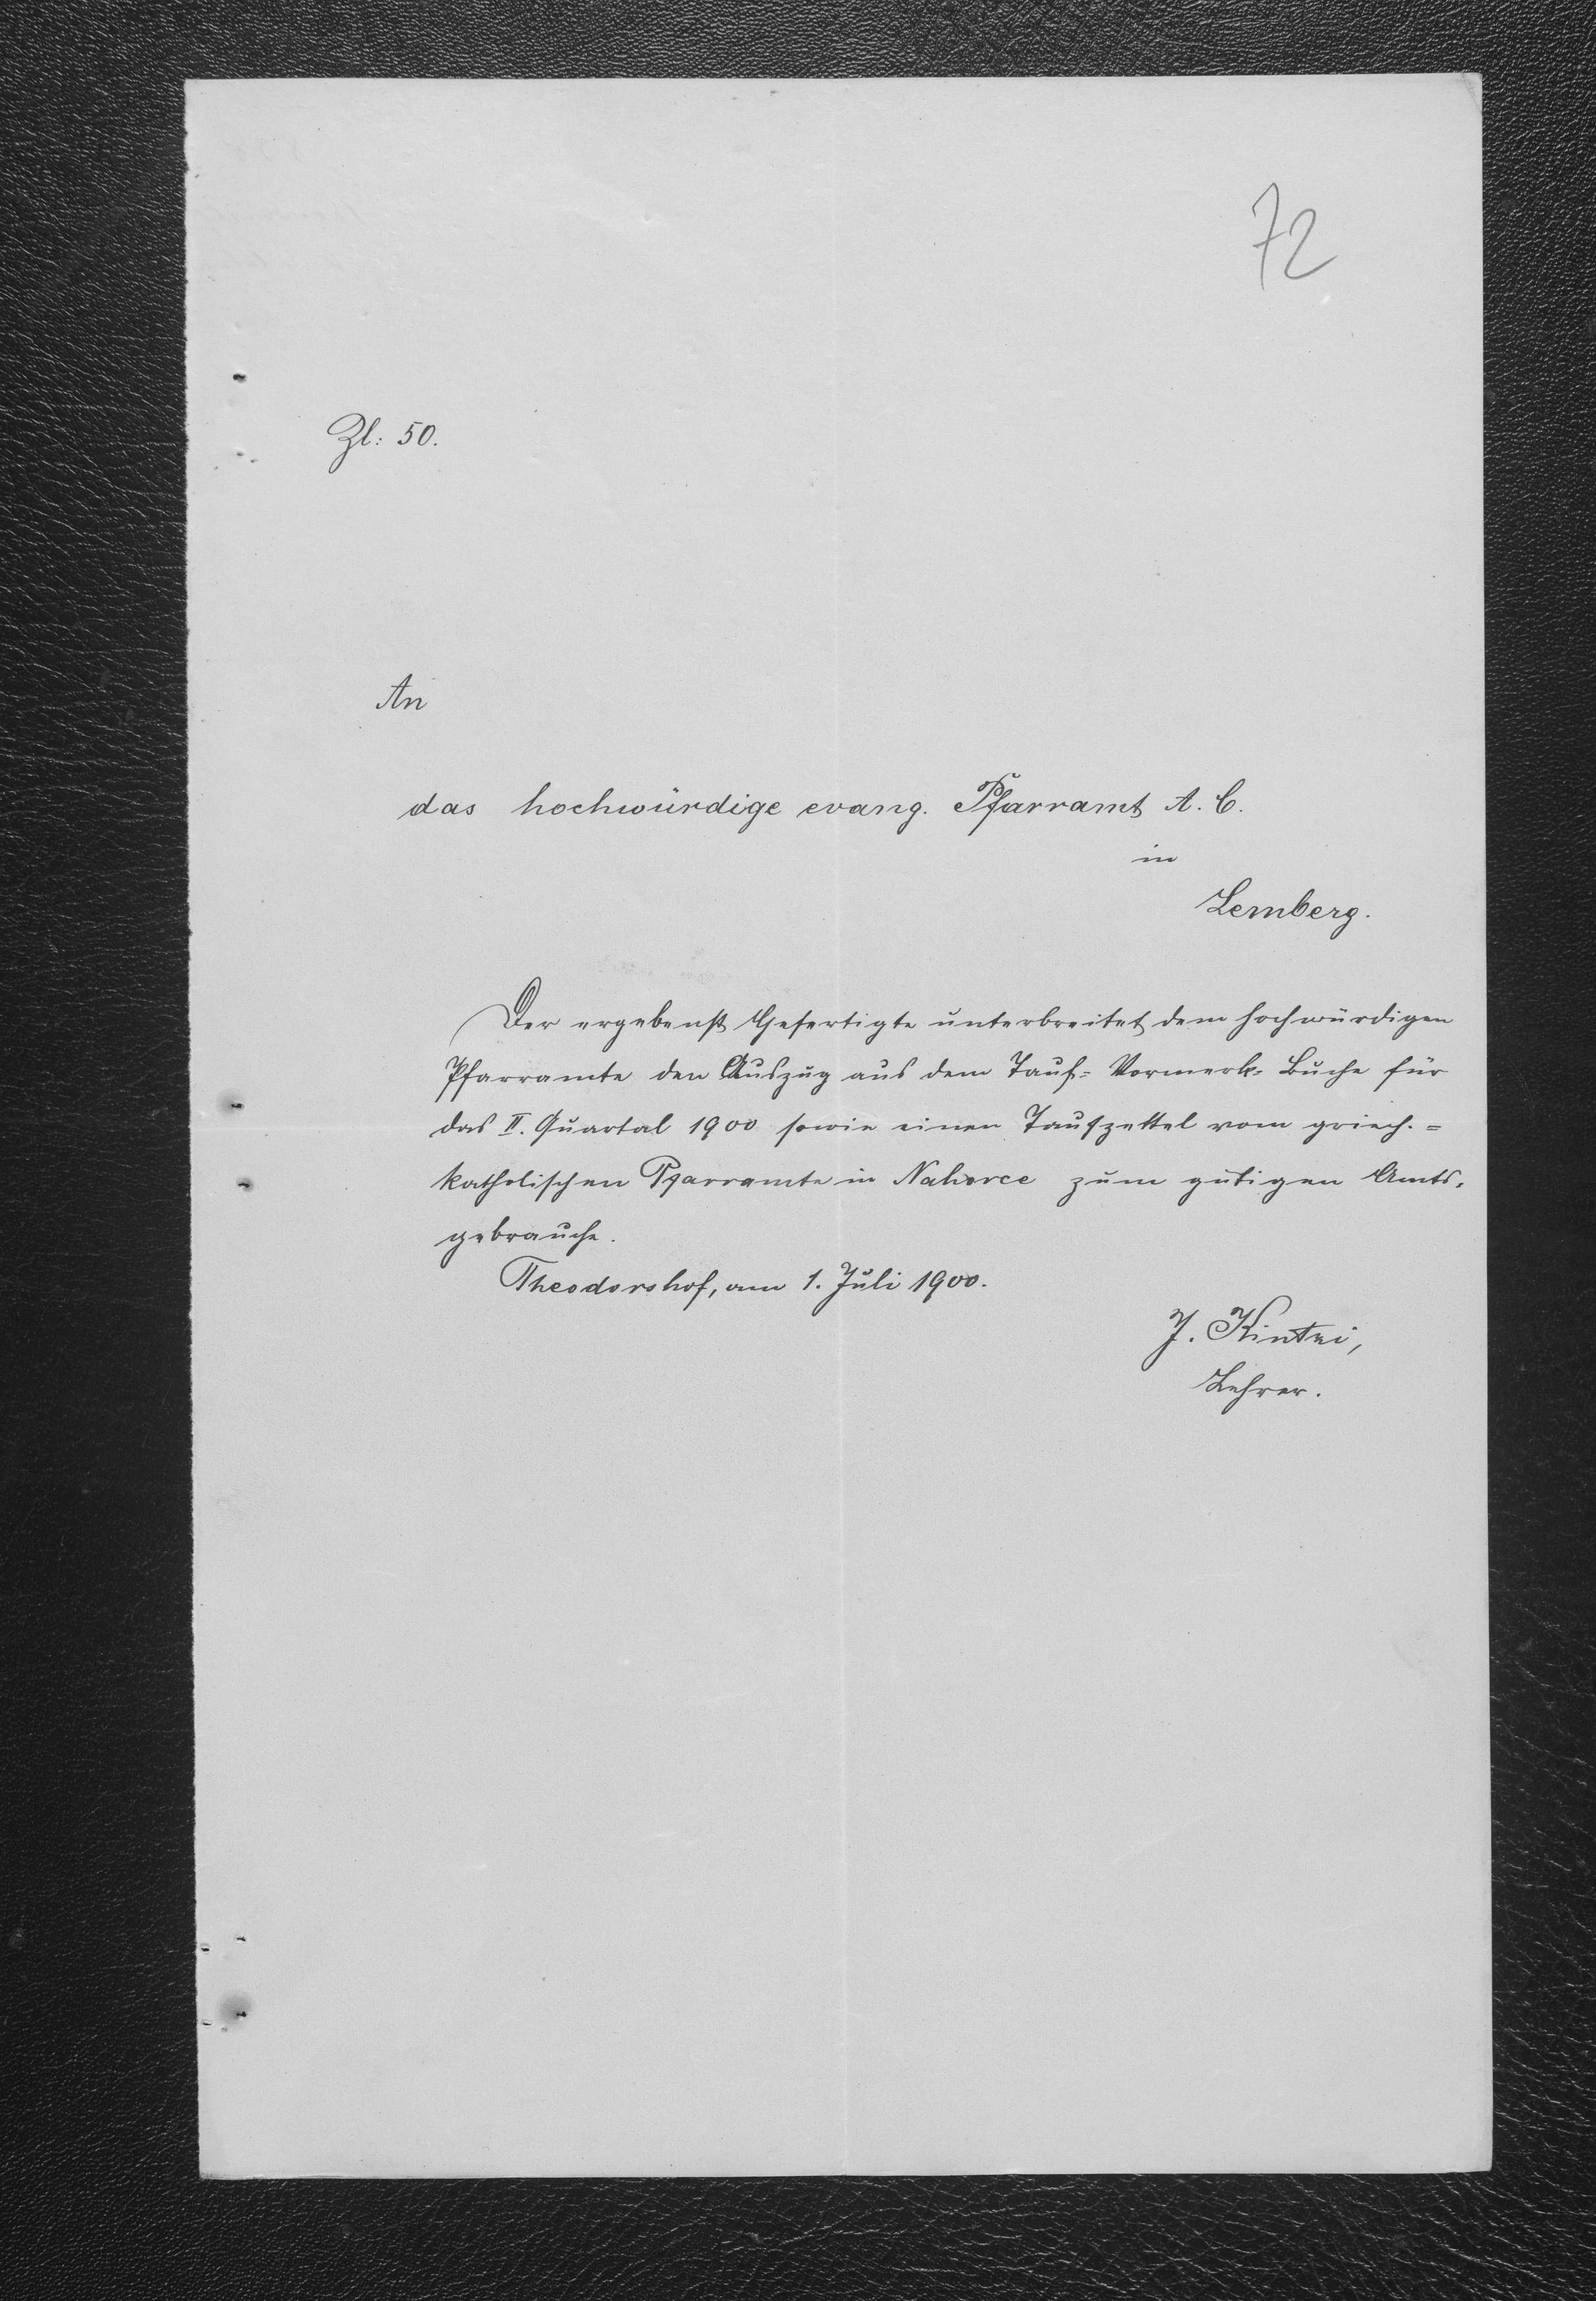 72
Zl: 50.
An
das hochwürdige evang. Pfarramt A. C.
in
Lemberg.
Der ergebenst Gefertigte unterbreitet dem hochwürdigen
Pfarramte den Auszug aus dem Tauf- Vormerk- Buche für
das II. Quartal 1900 sowie einen Taufzettel vom griech. =
katholischen Pfarramte in Nahorce zum gütigen Amts-
gebrauche.
Theodorshof, am 1. Juli 1900.
J. Kintzi,
Lehrer.